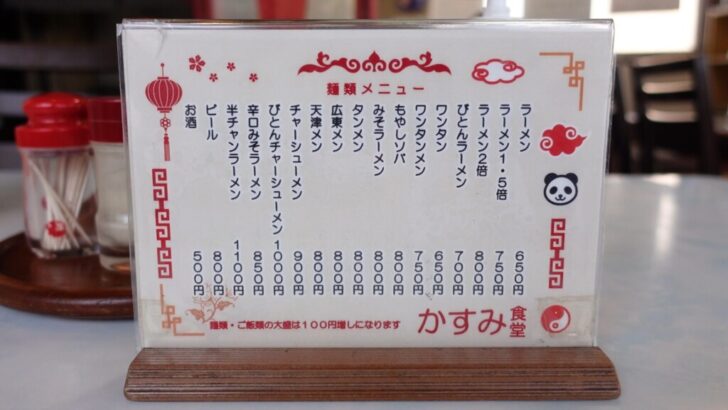 麺類メニュー
ラーメン 650円
ラーメン1・5倍 750円
ラーメン2倍 800円
びとんラーメン 700円
ワンタン 650円
ワンタンメン 750円
もやしソバ 800円
みそラーメン 800円
タンメン 800円
広東メン 800円
天津メン 800円
チャーシューメン 900円
びとんチャーシューメン 1000円
辛口みそラーメン 850円
半チャンラーメン 1100円
ビール 800円
お酒 500円
麺類・ご飯類の大盛は100円増しになります
かすみ食堂